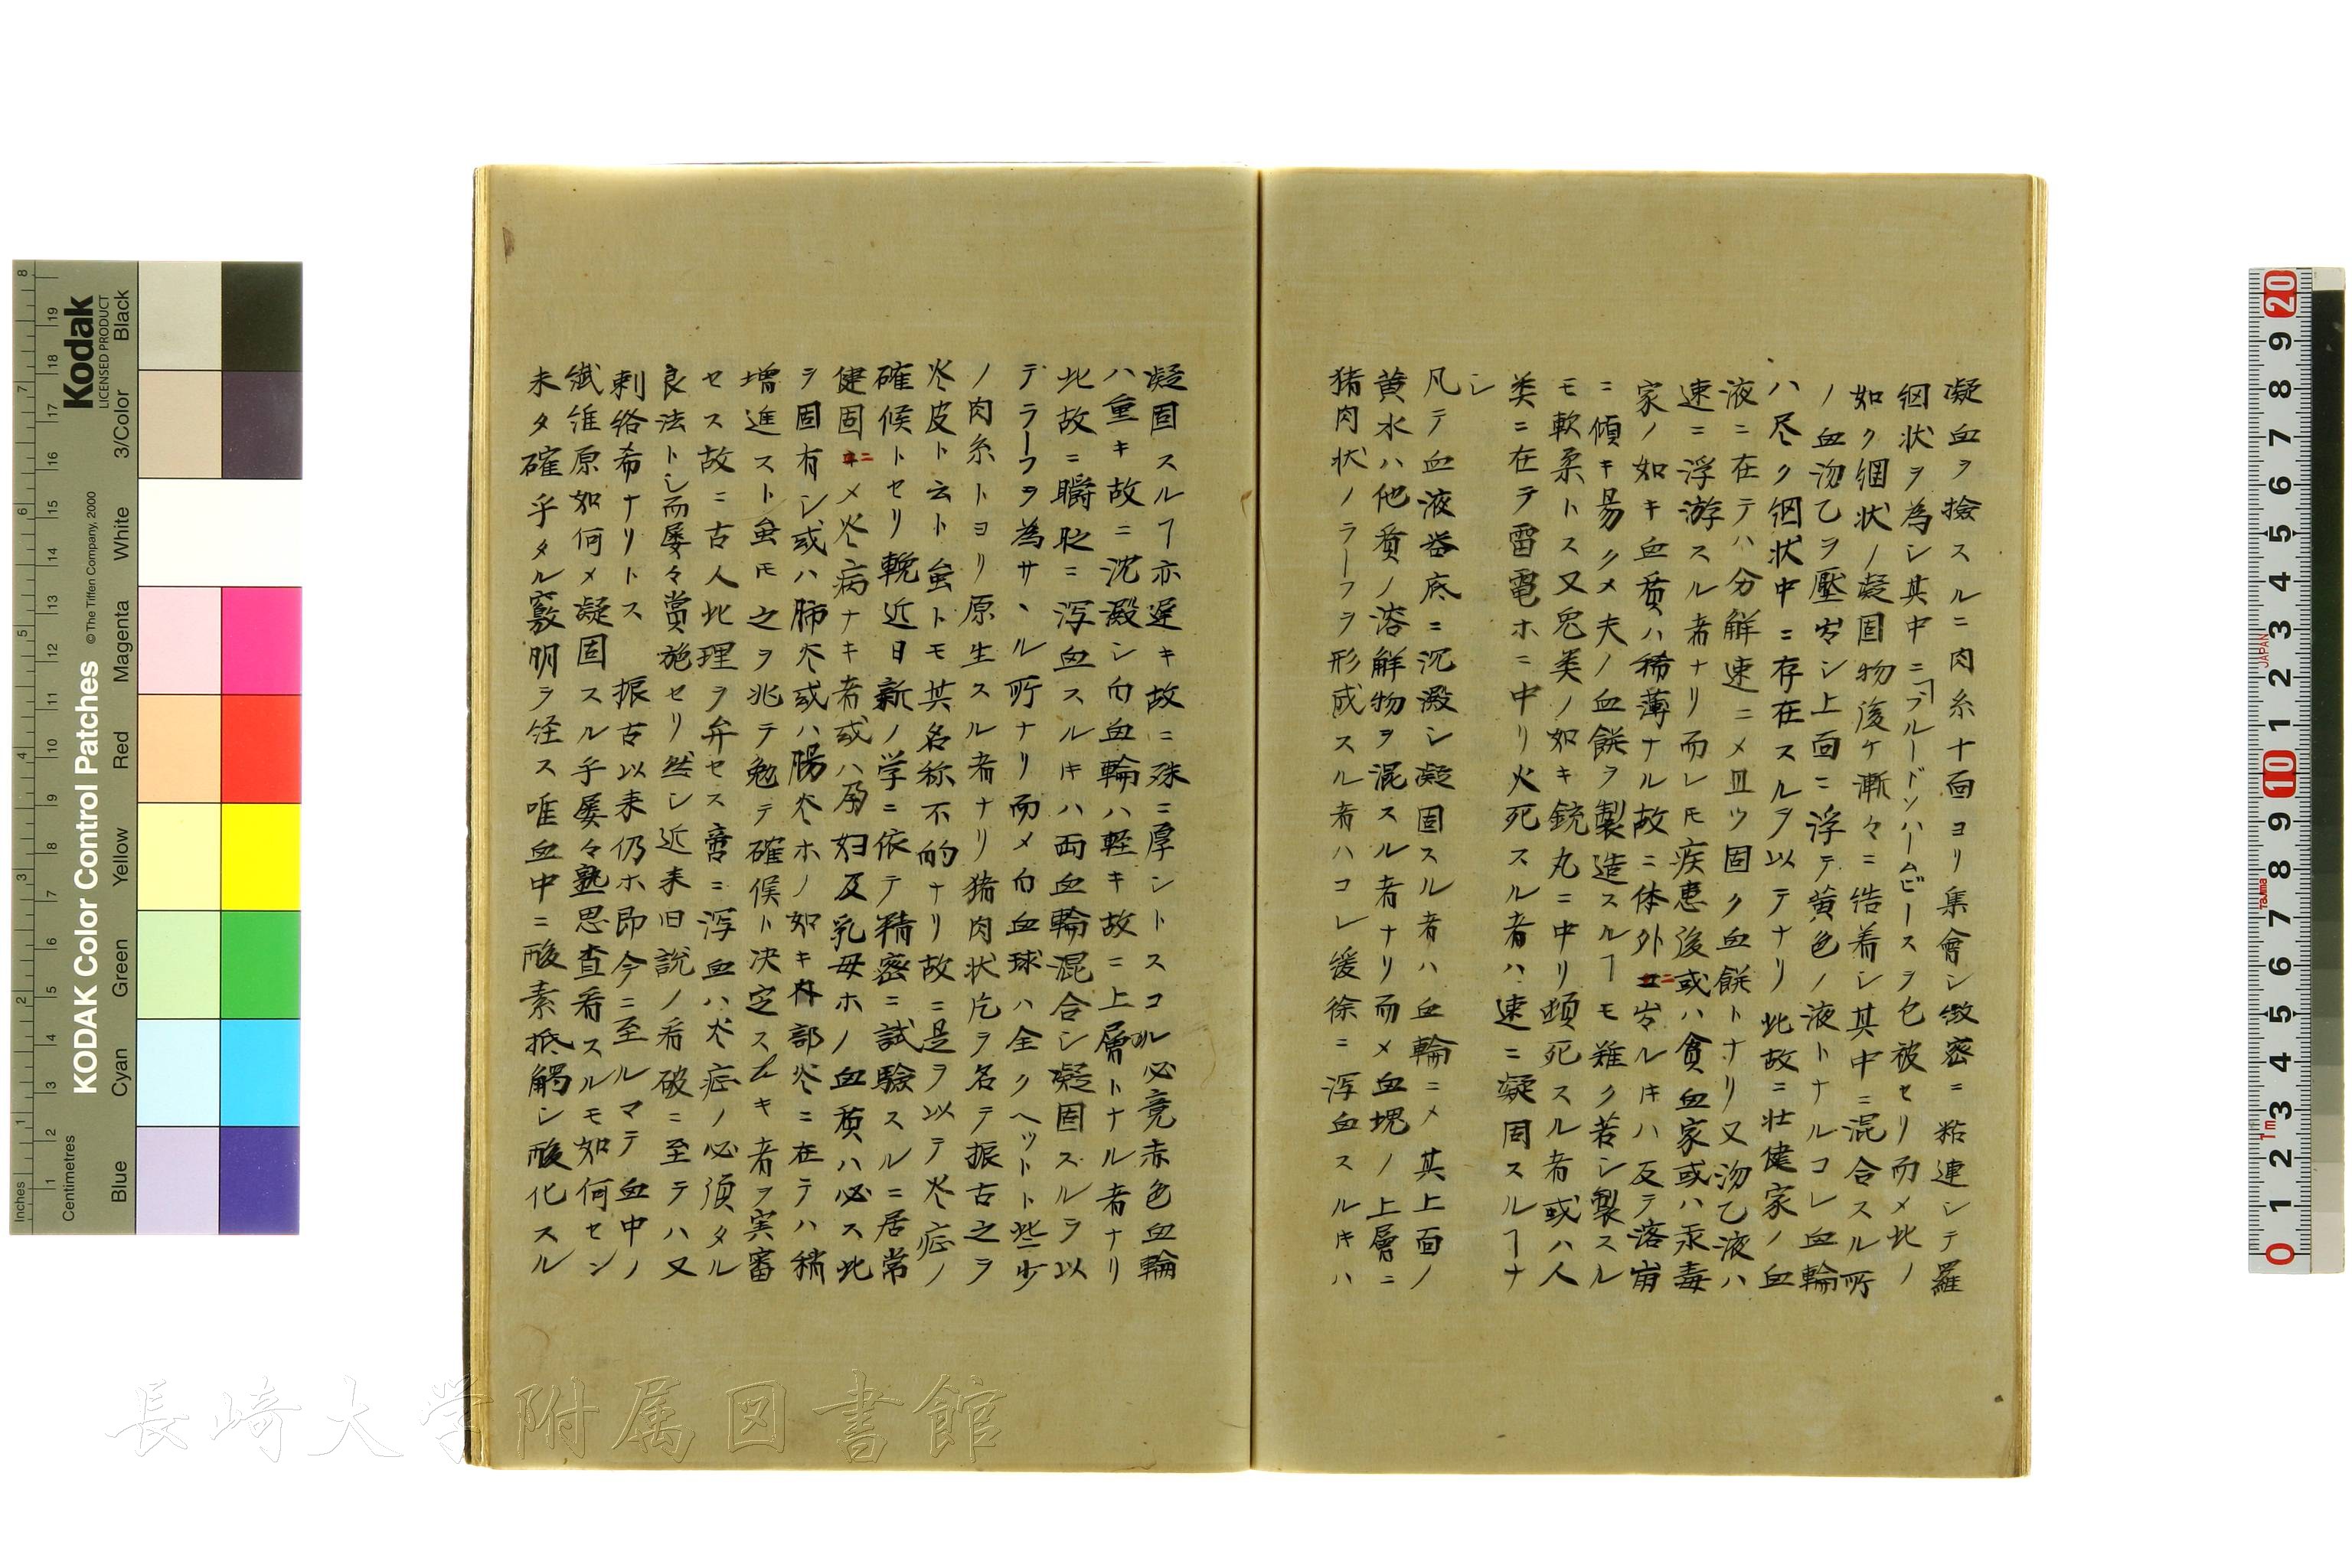 凝血ヲ撿スルニ肉糸十面ヨリ集會シ緻密ニ粘連シテ羅
網状ヲ為シ其中ニブルードソハームビースヲ包被セリ而メ此ノ
如ク網状ノ凝固物後ケ漸々ニ結着シ其中ニ混合スル所
ノ血沕乙ヲ壓出シ上面ニ浮テ黄色ノ液トナルコレ血輪
ハ尽ク網状中ニ存在スルヲ以テナリ此故ニ壮健家ノ血
液ニ在テハ分解速ニメ且ツ固ク血餅トナリ又沕乙液ハ
速ニ浮游スル者ナリ而レ𪜈疾患後或ハ貪血家或ハ汞毒
家ノ如キ血質ハ稀薄ナル故ニ体外ニ出ルキハ反テ落崩
ニ傾キ易クメ夫ノ血餅ヲ製造スルヿモ難ク若シ製スル
モ軟柔トス又兎類ノ如キ銃丸ニ中リ頓死スル者或ハ人
類ニ在テ雷電ホニ中リ火死スル者ハ速ニ凝固スルヿナ
シ
凡テ血液器底ニ沉澱シ凝固スル者ハ血輪ニメ其上面ノ
黄水ハ他質ノ溶解物ヲ混スル者ナリ而メ血塊ノ上層ニ
猪肉状ノラーフヲ形成スル者ハコレ緩徐ニ泻血スルキハ
凝固スルヿ亦遅キ故ニ殊ニ厚シトスコレ必竟赤色血輪
ハ重キ故ニ沈澱シ白血輪ハ軽キ故ニ上層トナル者ナリ
此故ニ瞬眩ニ泻血スルキハ両血輪混合シ凝固スルヲ以
テラーフヲ為サヽル所ナリ而メ白血球ハ全クヘットト些少
ノ肉糸トヨリ原生スル者ナリ猪肉状片ヲ名テ振古之ヲ
炎皮ト云ト虽トモ其名称不的ナリ故ニ是ヲ以テ炎症ノ
確候トセリ輓近日新ノ学ニ依テ精密ニ試驗スルニ居常
健固ニメ炎病ナキ者或ハ孕婦及乳母ホノ血質ハ必ス此
ヲ固有シ或ハ肺炎或ハ腸炎ホノ如キ内部炎ニ在テハ稍
増進スト虽𪜈之ヲ兆テ勉テ確候ト决定スヘキ者ヲ実審
セス故ニ古人此理ヲ弁セス啻ニ泻血ハ炎症ノ必須タル
良法トシ而屡々賞施セリ然シ近来旧說ノ看破ニ至テハ又
刺絡希ナリトス 振古以来仍ホ即今ニ至ルマテ血中ノ
繊維原如何メ凝固スル乎屡々熟思查看スルモ如何セン
未タ確乎タル竅明ヲ経ス唯血中ニ酸素抵觸シ酸化スル
KODAK Color Control Patches
© The Tiffen Company, 2000
Kodak
LICENSED PRODUCT
Inches
Centimetres
Blue
Cyan
Green
Yellow
Red
Magenta
White
3/Color
Black
長崎大学附属図書館